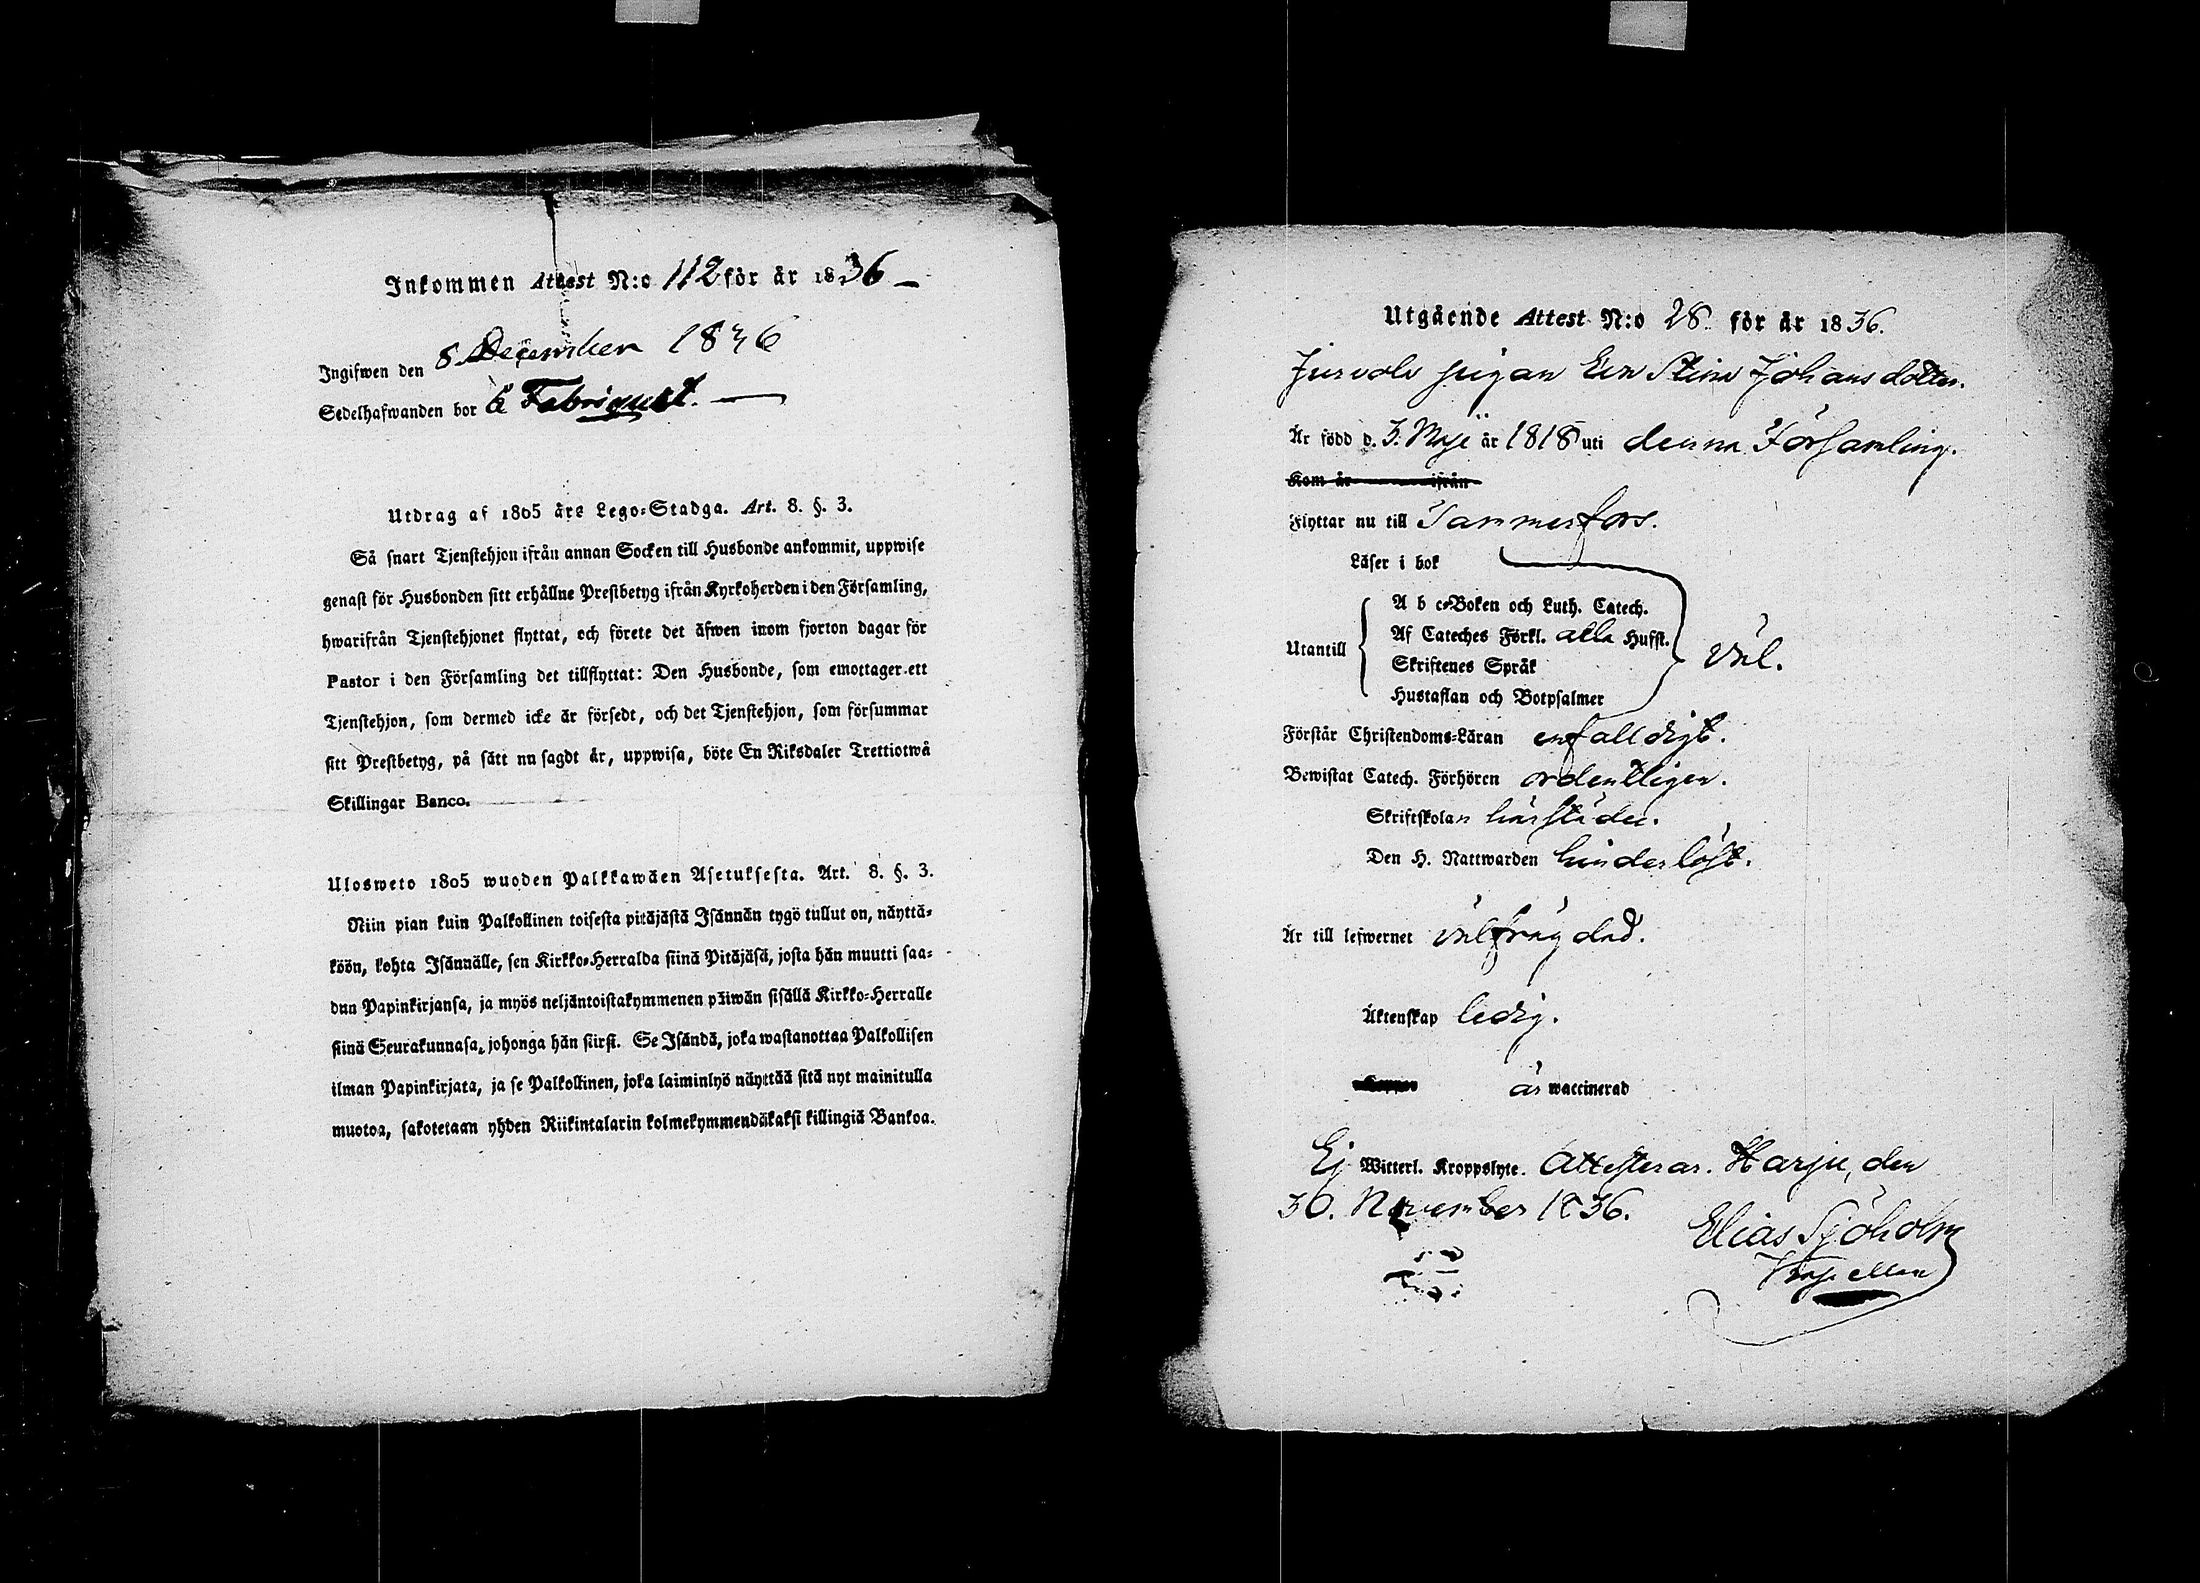 Inkommen Attest N:o 112 för år 1836 —
Ingifwen den 8 December 1836
Sedelhafwanden bor å Fabriquet. —
Utdrag af 1805 års Lego-Stadga. Art. 8. §. 3.
Så snart Tjenstehjon ifrån annan Socken till Husbonde ankommit, uppwise
genast för Husbonden sitt erhållne Prestbetyg ifrån Kyrkoherden i den Församling,
hwarifrån Tjenstehjonet flyttat, och förete det äfwen inom fjorton dagar för
Pastor i den Församling det tillflyttat: Den Husbonde, som emottager ett
Tjenstehjon, som dermed icke är försedt, och det Tjenstehjon, som försummar
sitt Prestbetyg, på sätt nu sagdt är, uppwisa, böte En Riksdaler Trettiotwå
Skillingar Banco.
Ulosweto 1805 wuoden Palkkawäen Asetuksesta. Art. 8. §. 3.
Niin pian kuin Palkollinen toisesta pitäjästä Isännän tygö tullut on, näyttä-
köön, kohta Isännälle, sen Kirkko-Herralda siinä Pitäjäsä, josta hän muutti saa-
dun Papinkirjansa, ja myös neljäntoistakymmenen päiwän sisällä Kirkko-Herralle
siinä Seurakunnasa, johonga hän siirsi. Se Isändä, joka wastanottaa Palkollisen
ilman Papinkirjata, ja se Palkollinen, joka laiminlyö näyttää sitä nyt mainitulla
muotoa, sakotetaan yhden Riikintalarin kolmekymmendäkaksi killingiä Bankoa.
Utgående Attest N:o 28 för år 1836.
pigan Stina Johansdotter.
Är född d. 3. Maji år 1818 uti denna Församling.
Kom år ifrån
Flyttar nu till Tammerfors.
Läser i bok
A b c-Boken och Luth. Catech.
Af Cateches Förkl. alla Hufst.
Utantill
Skriftenes Språk
väl.
Hustaflan och Botpsalmer
Förstår Christendoms-Läran enfalldigt.
Bewistat Catech. Förhören ordentligen.
Skriftskolan härstädes.
Den H. Nattwarden hinderlöst.
Är till lefwernet välfrägdad.
Äktenskap ledig.
är waccinerad
Ej Witterl. Kroppslyte. Attesterar. Harju, den
30. November 1836.
Elias Sjöholm
Kapellan